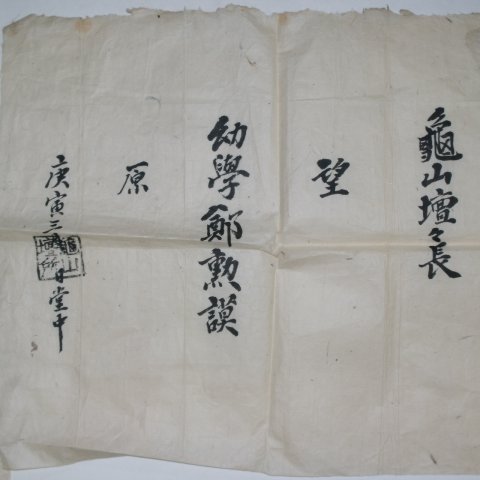 龜山壇々長
望
幼學鄭勲謨
原
庚寅三月 日堂中